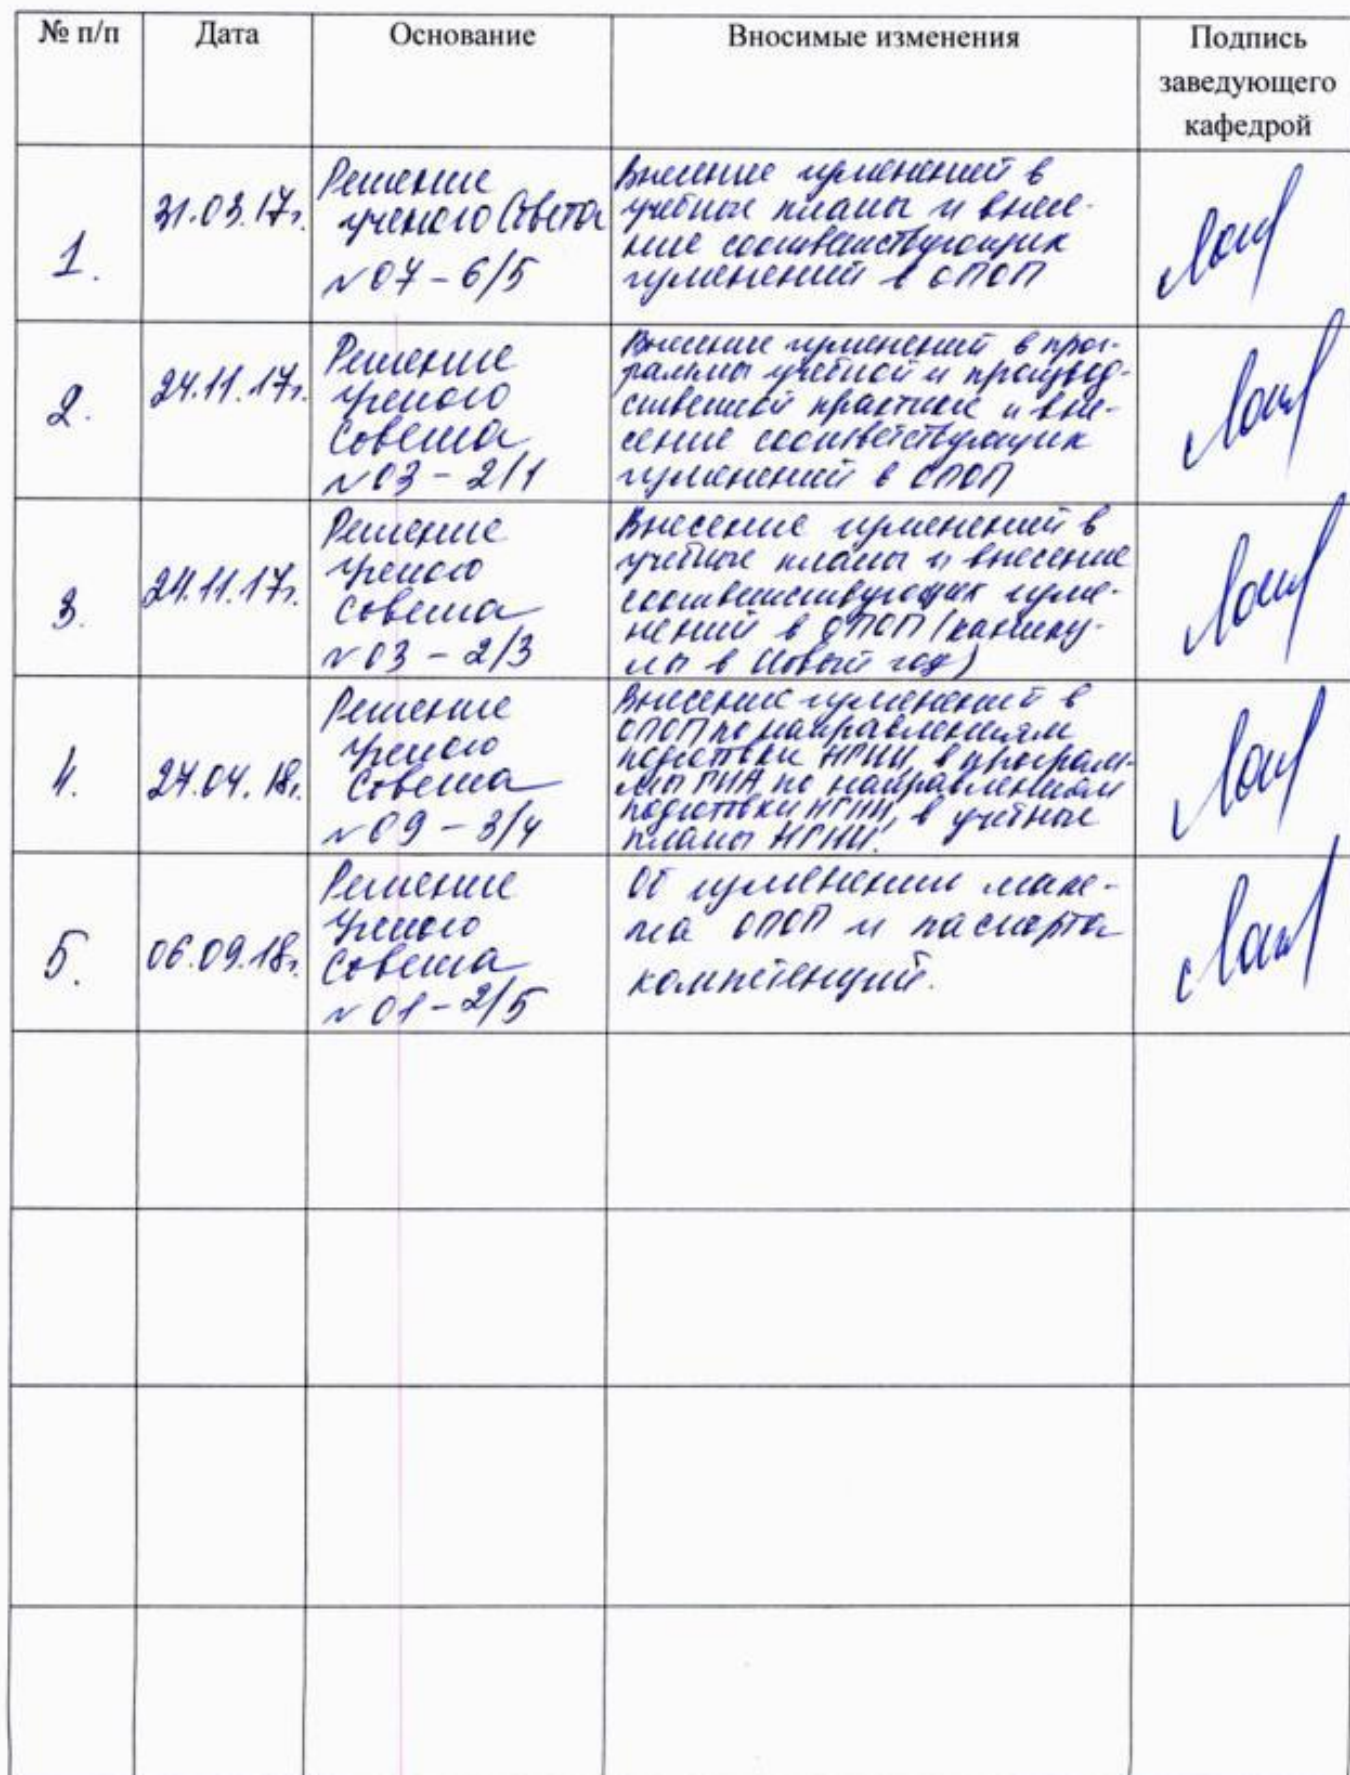 № п/п
Дата
Основание
Вносимые изменения
Подпись
заведующего
кафедрой
1.
31.03.17г.
Решение
ученого Совета
№ 07 - 6/5
Внесение изменений в
учебные планы и внесе-
ние соответствующих
изменений в ОПОП
2.
24.11.17г.
Решение
ученого
Совета
№ 03 - 2/1
Внесение изменений в прог-
раммы учебной и производ-
ственной практики и вне-
сение соответствующих
изменений в ОПОП
3.
24.11.17г.
Решение
ученого
Совета
№ 03 - 2/3
Внесение изменений в
учебные планы и внесение
соответствующих изме-
нений в ОПОП (канику-
лы в Новый год)
4.
27.04.18г.
Решение
ученого
Совета
№ 09 - 3/4
Внесение изменений в
ОПОП по направлениям
подготовки НГИИ, в програм-
мы ГИА по направлениям
подготовки НГИИ, в учебные
планы НГИИ.
5.
06.09.18г.
Решение
Ученого
Совета
№ 01 - 2/5
Об изменении маке-
та ОПОП и паспорта
компетенций.